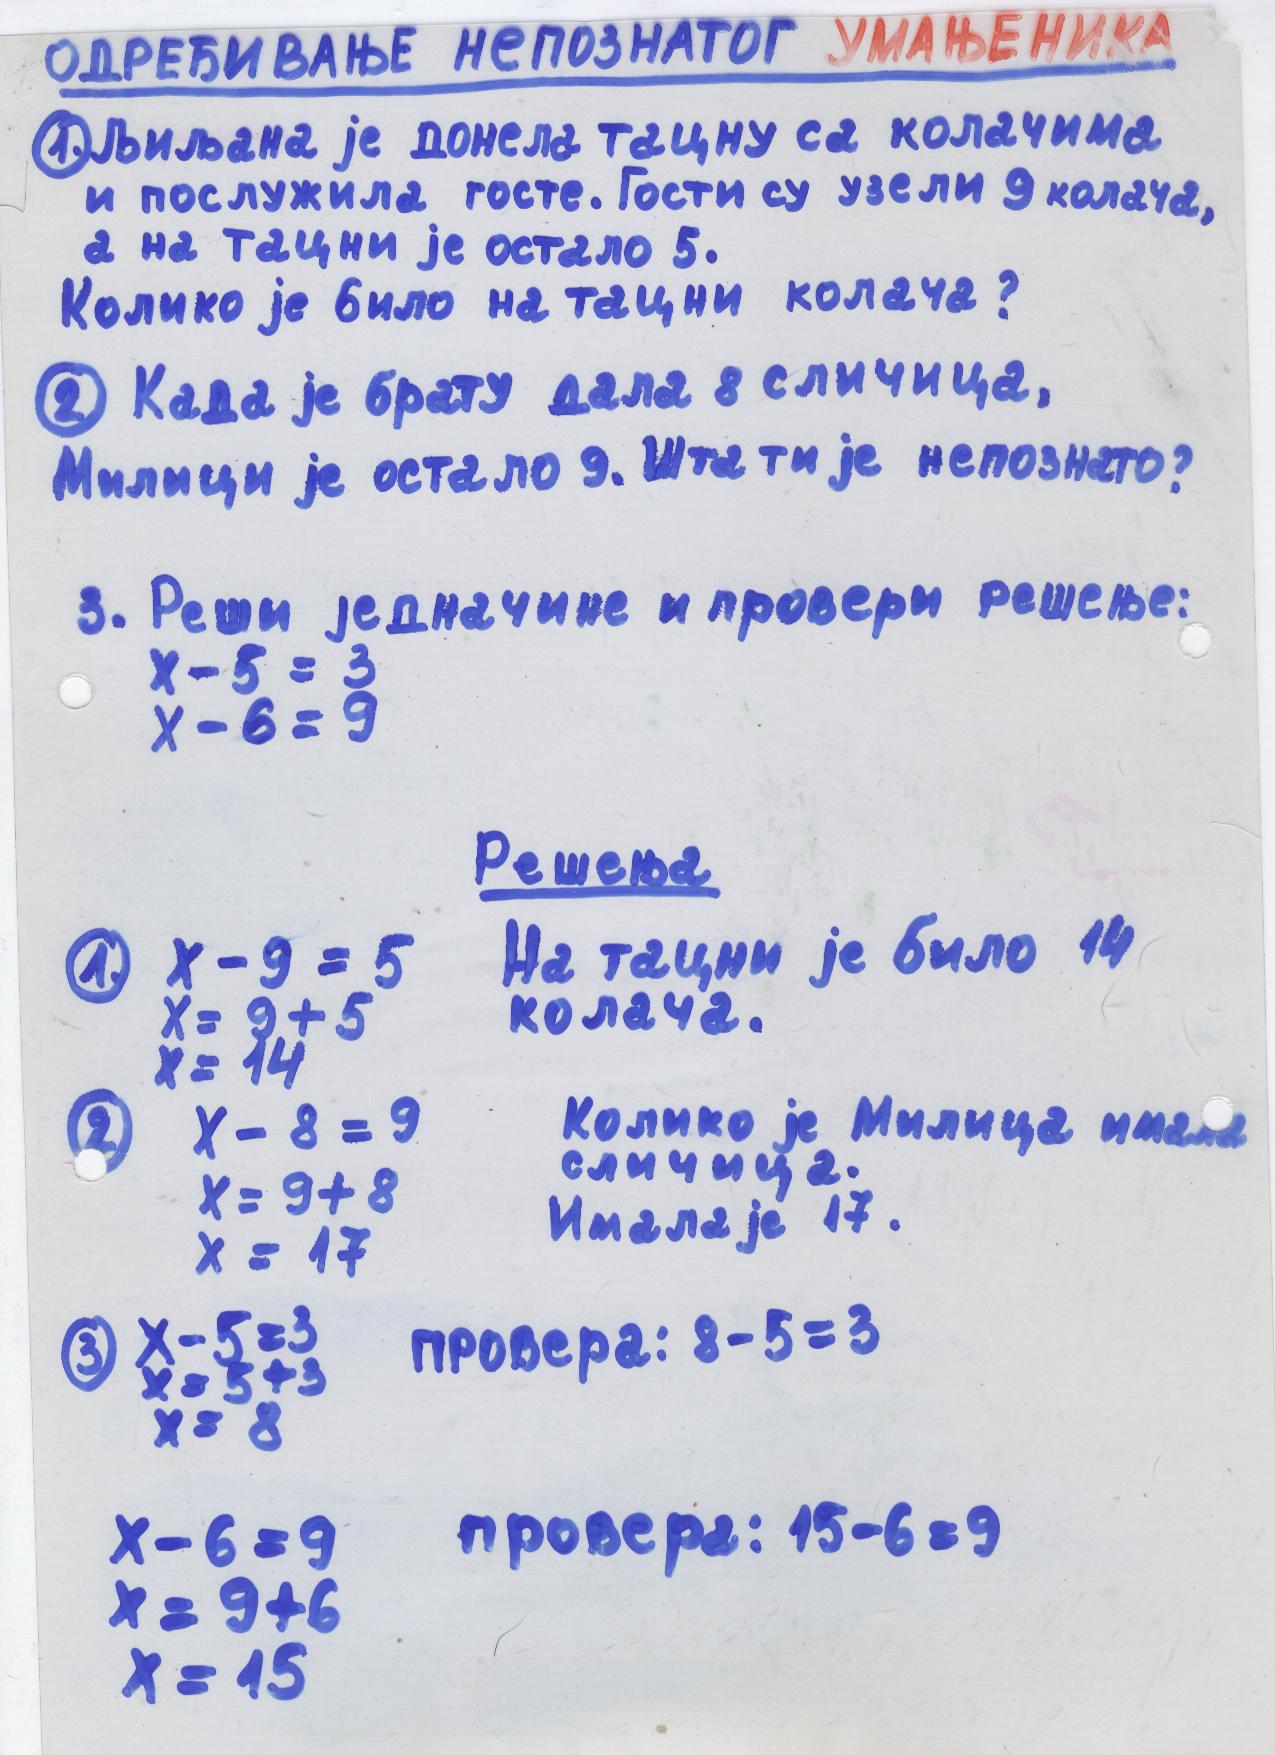 ОДРЕЂИВАЊЕ НЕПОЗНАТОГ УМАЊЕНИКА
1. Љиљана је донела тацну са колачима
и послужила госте. Гости су узели 9 колача,
а на тацни је остало 5.
Колико је било на тацни колача?
2 Када је брату дала 8 сличица,
Милици је остало 9. Шта ти је непознато?
3. Реши једначине и провери решење:
x - 5 = 3
x - 6 = 9
Решења
1. x - 9 = 5 На тацни је било 14
x = 9 + 5 колача.
x = 14
2 x - 8 = 9 Колико је Милица имала
сличица.
x = 9 + 8 Имала је 17.
x = 17
3 x - 5 = 3 провера: 8 - 5 = 3
x = 5 + 3
x = 8
x - 6 = 9 провера: 15 - 6 = 9
x = 9 + 6
x = 15